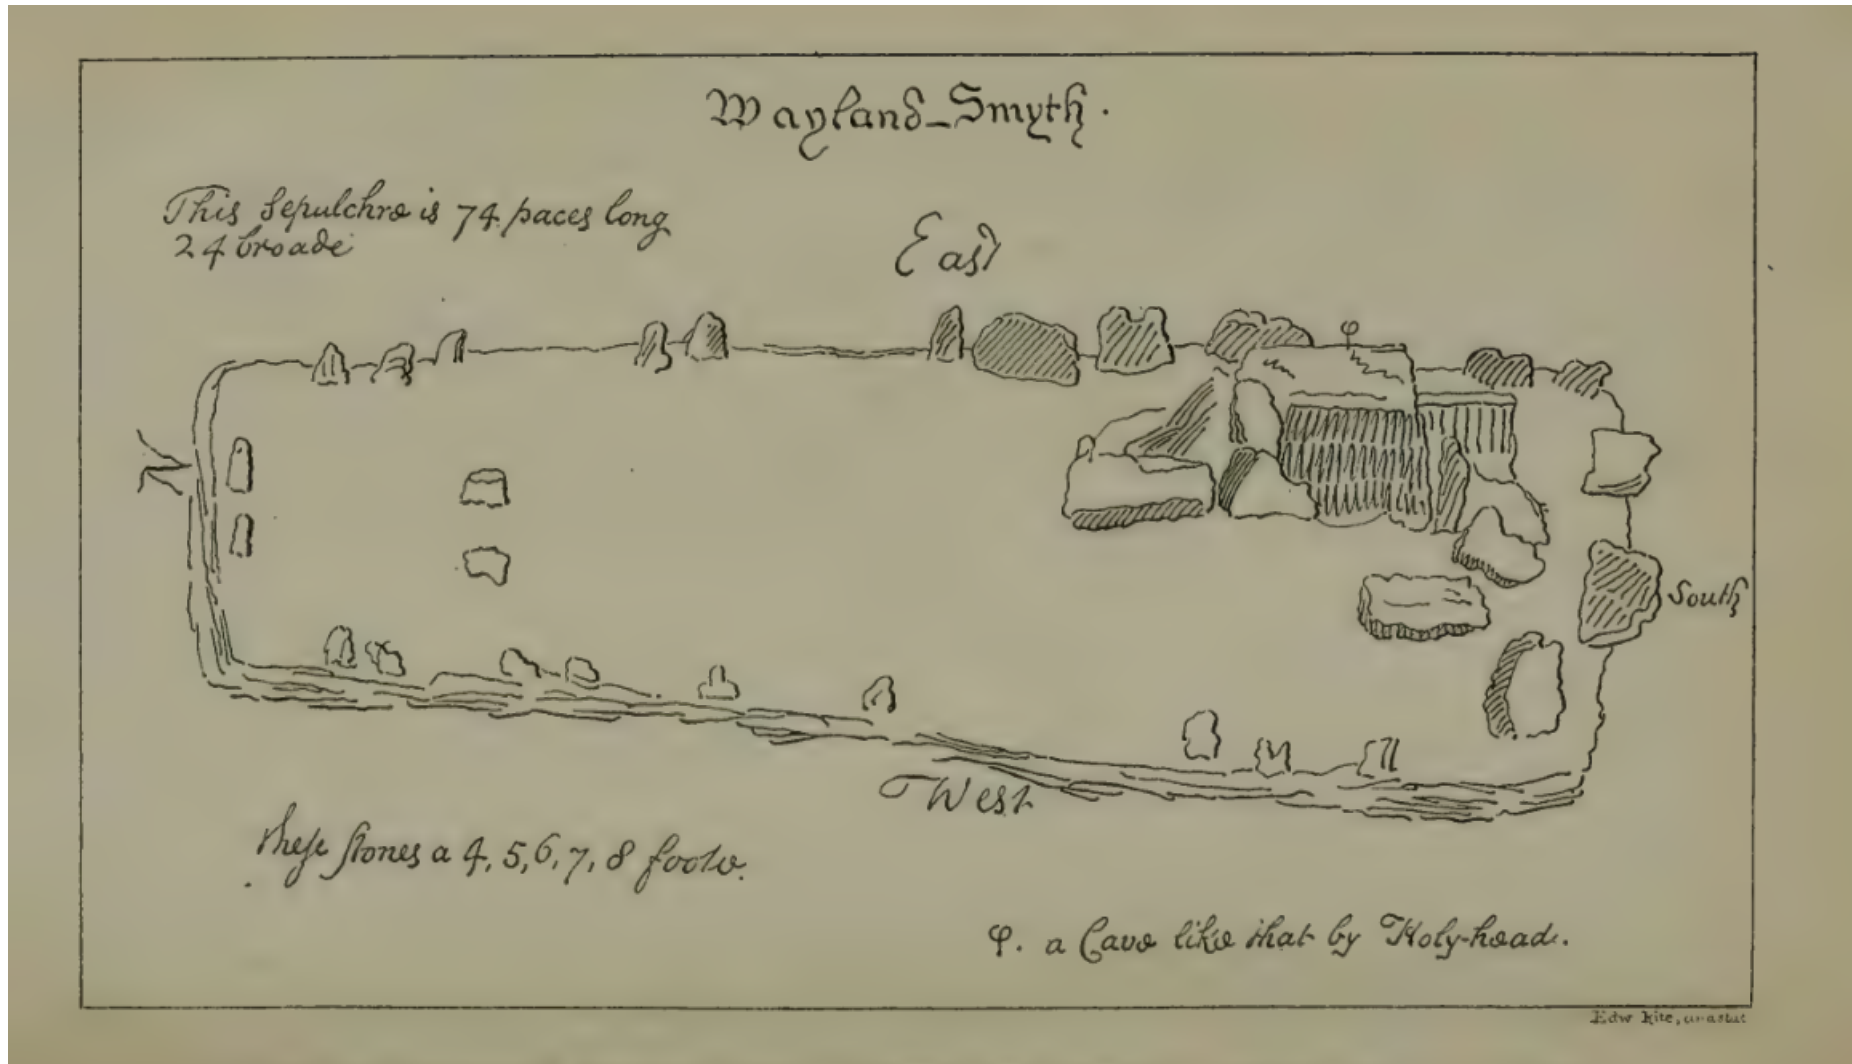 Wayland-Smyth.
This Sepulchre is 74 paces long
24 broade
East
South
West
these stones a 4, 5, 6, 7, 8 foote.
φ
φ. a Cave like that by Holy-head.
Edw Kite, anastat